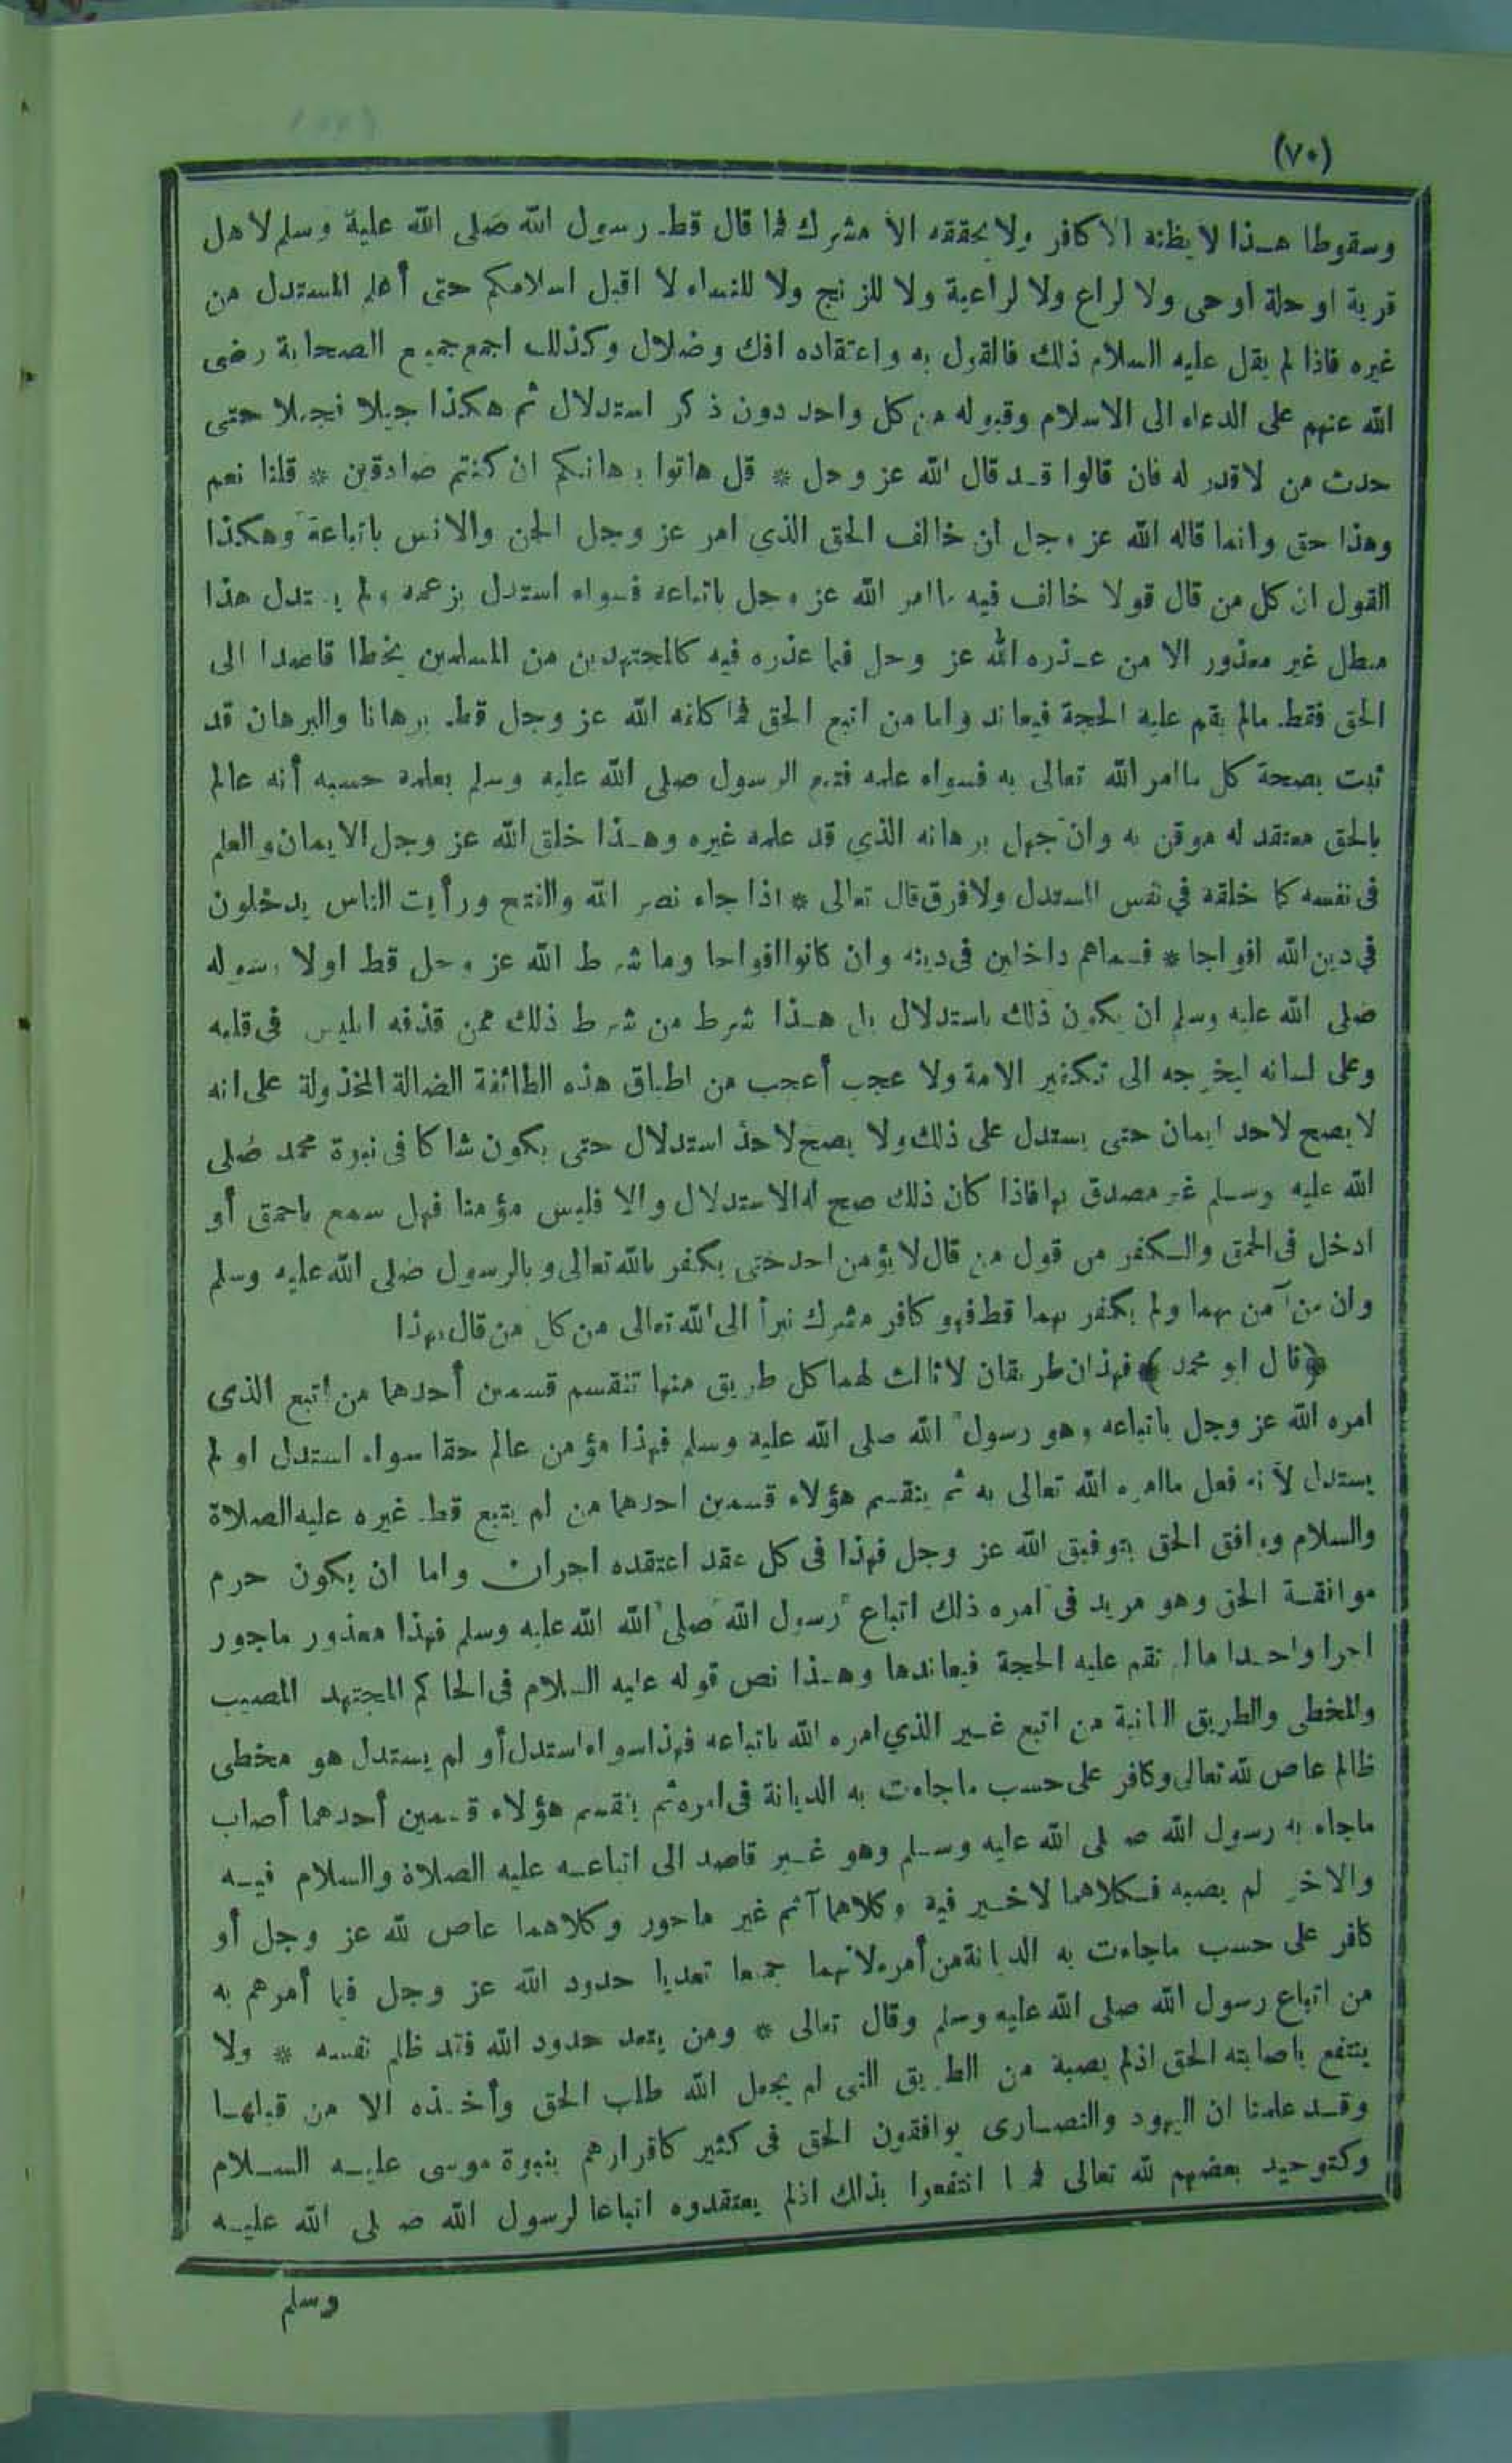 (٧٠)
وسقوطا هـذا لا يظنه الا كافر ولا يحققه الا مشرك فما قال قط رسول الله صلى الله عليه وسلم لاهل
قرية او حلة او حى ولا لراع ولا لراعية ولا للزنج ولا للنساء لا اقبل اسلامكم حتى أعلم المستدل من
غيره فاذا لم يقل عليه السلام ذلك فالقول به واعتقاده افك وضلال وكذلك اجمع جميع الصحابة رضى
الله عنهم على الدعاء الى الاسلام وقبوله من كل واحد دون ذكر استدلال ثم هكذا جيلا فجيلا حتى
حدث من لا قدر له فان قالوا قـد قال الله عز وجل * قل هاتوا برهانكم ان كنتم صادقين * قلنا نعم
وهذا حق وانما قاله الله عز وجل ان خالف الحق الذي امر عز وجل الجن والانس باتباعه وهكذا
القول ان كل من قال قولا خالف فيه ما امر الله عز وجل باتباعه فسواء استدل بزعمه ولم يستدل هذا
مبطل غير معذور الا من عـذره الله عز وجل فيما عذره فيه كالمجتهدين من المسلمين يخطا قاصدا الى
الحق فقط مالم يقم عليه الحجة فيعاند واما من اتبع الحق فما كلفه الله عز وجل قط برهانا والبرهان قد
ثبت بصحة كل ما امر الله تعالى به فسواء علمه فتبع الرسول صلى الله عليه وسلم بعلمه حسبه أنه عالم
بالحق معتقد له موقن به وان جهل برهانه الذى قد علمه غيره وهـذا خلق الله عز وجل الايمان والعلم
فى نفسه كما خلقه في نفس المستدل ولا فرق قال تعالى * اذا جاء نصر الله والفتح ورأيت الناس يدخلون
في دين الله افواجا * فسماهم داخلين فى دينه وان كانوا افواجا وما شرط الله عز وجل قط اولا رسوله
صلى الله عليه وسلم ان يكون ذلك باستدلال بل هـذا شرط من شرط ذلك ممن قذفه ابليس فى قلبه
وعلى لسانه ليخرجه الى تكفير الامة ولا عجب أعجب من اطباق هذه الطائفة الضالة المخذولة على انه
لا يصح لاحد ايمان حتى يستدل على ذلك ولا يصح لاحد استدلال حتى يكون شاكا فى نبوة محمد صلى
الله عليه وسـلم غير مصدق بها فاذا كان ذلك صح له الاستدلال والا فليس مؤمنا فهل سمع باحمق أو
ادخل فى الحمق والـكفر من قول من قال لا يؤمن احد حتى يكفر بالله تعالى وبالرسول صلى الله عليه وسلم
وان من آمن بهما ولم يكفر بهما قط فهو كافر مشرك نبرأ الى الله تعالى من كل من قال بهذا
﴿قال ابو محمد﴾ فهذان طريقان لا ثالث لهما كل طريق منها تنقسم قسمين أحدهما من اتبع الذى
امره الله عز وجل باتباعه وهو رسول الله صلى الله عليه وسلم فهذا مؤمن عالم حقا سواء استدل او لم
يستدل لانه فعل ماامره الله تعالى به ثم ينقسم هؤلاء قسمين احدهما من لم يتبع قط غيره عليه الصلاة
والسلام ووافق الحق بتوفيق الله عز وجل فهذا فى كل عقد اعتقده اجران واما ان يكون حرم
موافقـة الحق وهو مريد فى امره ذلك اتباع رسول الله صلى الله الله عليه وسلم فهذا معذور ماجور
اجرا واحـدا مالم تقم عليه الحجة فيعاندها وهـذا نص قوله عليه السلام فى الحاكم المجتهد المصيب
والمخطى والطريق الثانية من اتبع غـير الذي امره الله باتباعه فهذا سواء استدل أو لم يستدل هو مخطى
ظالم عاص لله تعالى وكافر على حسب ماجاءت به الديانة فى امره ثم ينقسم هؤلاء قـسمين أحدهما أصاب
ماجاء به رسول الله صلى الله عليه وسـلم وهو غـير قاصد الى اتباعـه عليه الصلاة والسلام فيـه
والاخر لم يصبه فـكلاهما لا خـير فيه وكلاهما آثم غير ماجور وكلاهما عاص لله عز وجل أو
كافر على حسب ماجاءت به الديانة من أمره لانهما جميعا تعديا حدود الله عز وجل فيما أمرهم به
من اتباع رسول الله صلى الله عليه وسلم وقال تعالى * ومن يتعد حدود الله فقد ظلم نفسه * ولا
ينتفع باصابته الحق اذلم يصبه من الطريق التى لم يجعل الله طلب الحق وأخـذه الا من قبلهـا
وقـد علمنا ان اليهود والنصـارى يوافقون الحق فى كثير كاقرارهم بنبوة موسى عليـه السـلام
وكتوحيد بعضهم لله تعالى فما انتفعوا بذلك اذلم يعتقدوه اتباعا لرسول الله صلى الله عليـه
وسلم